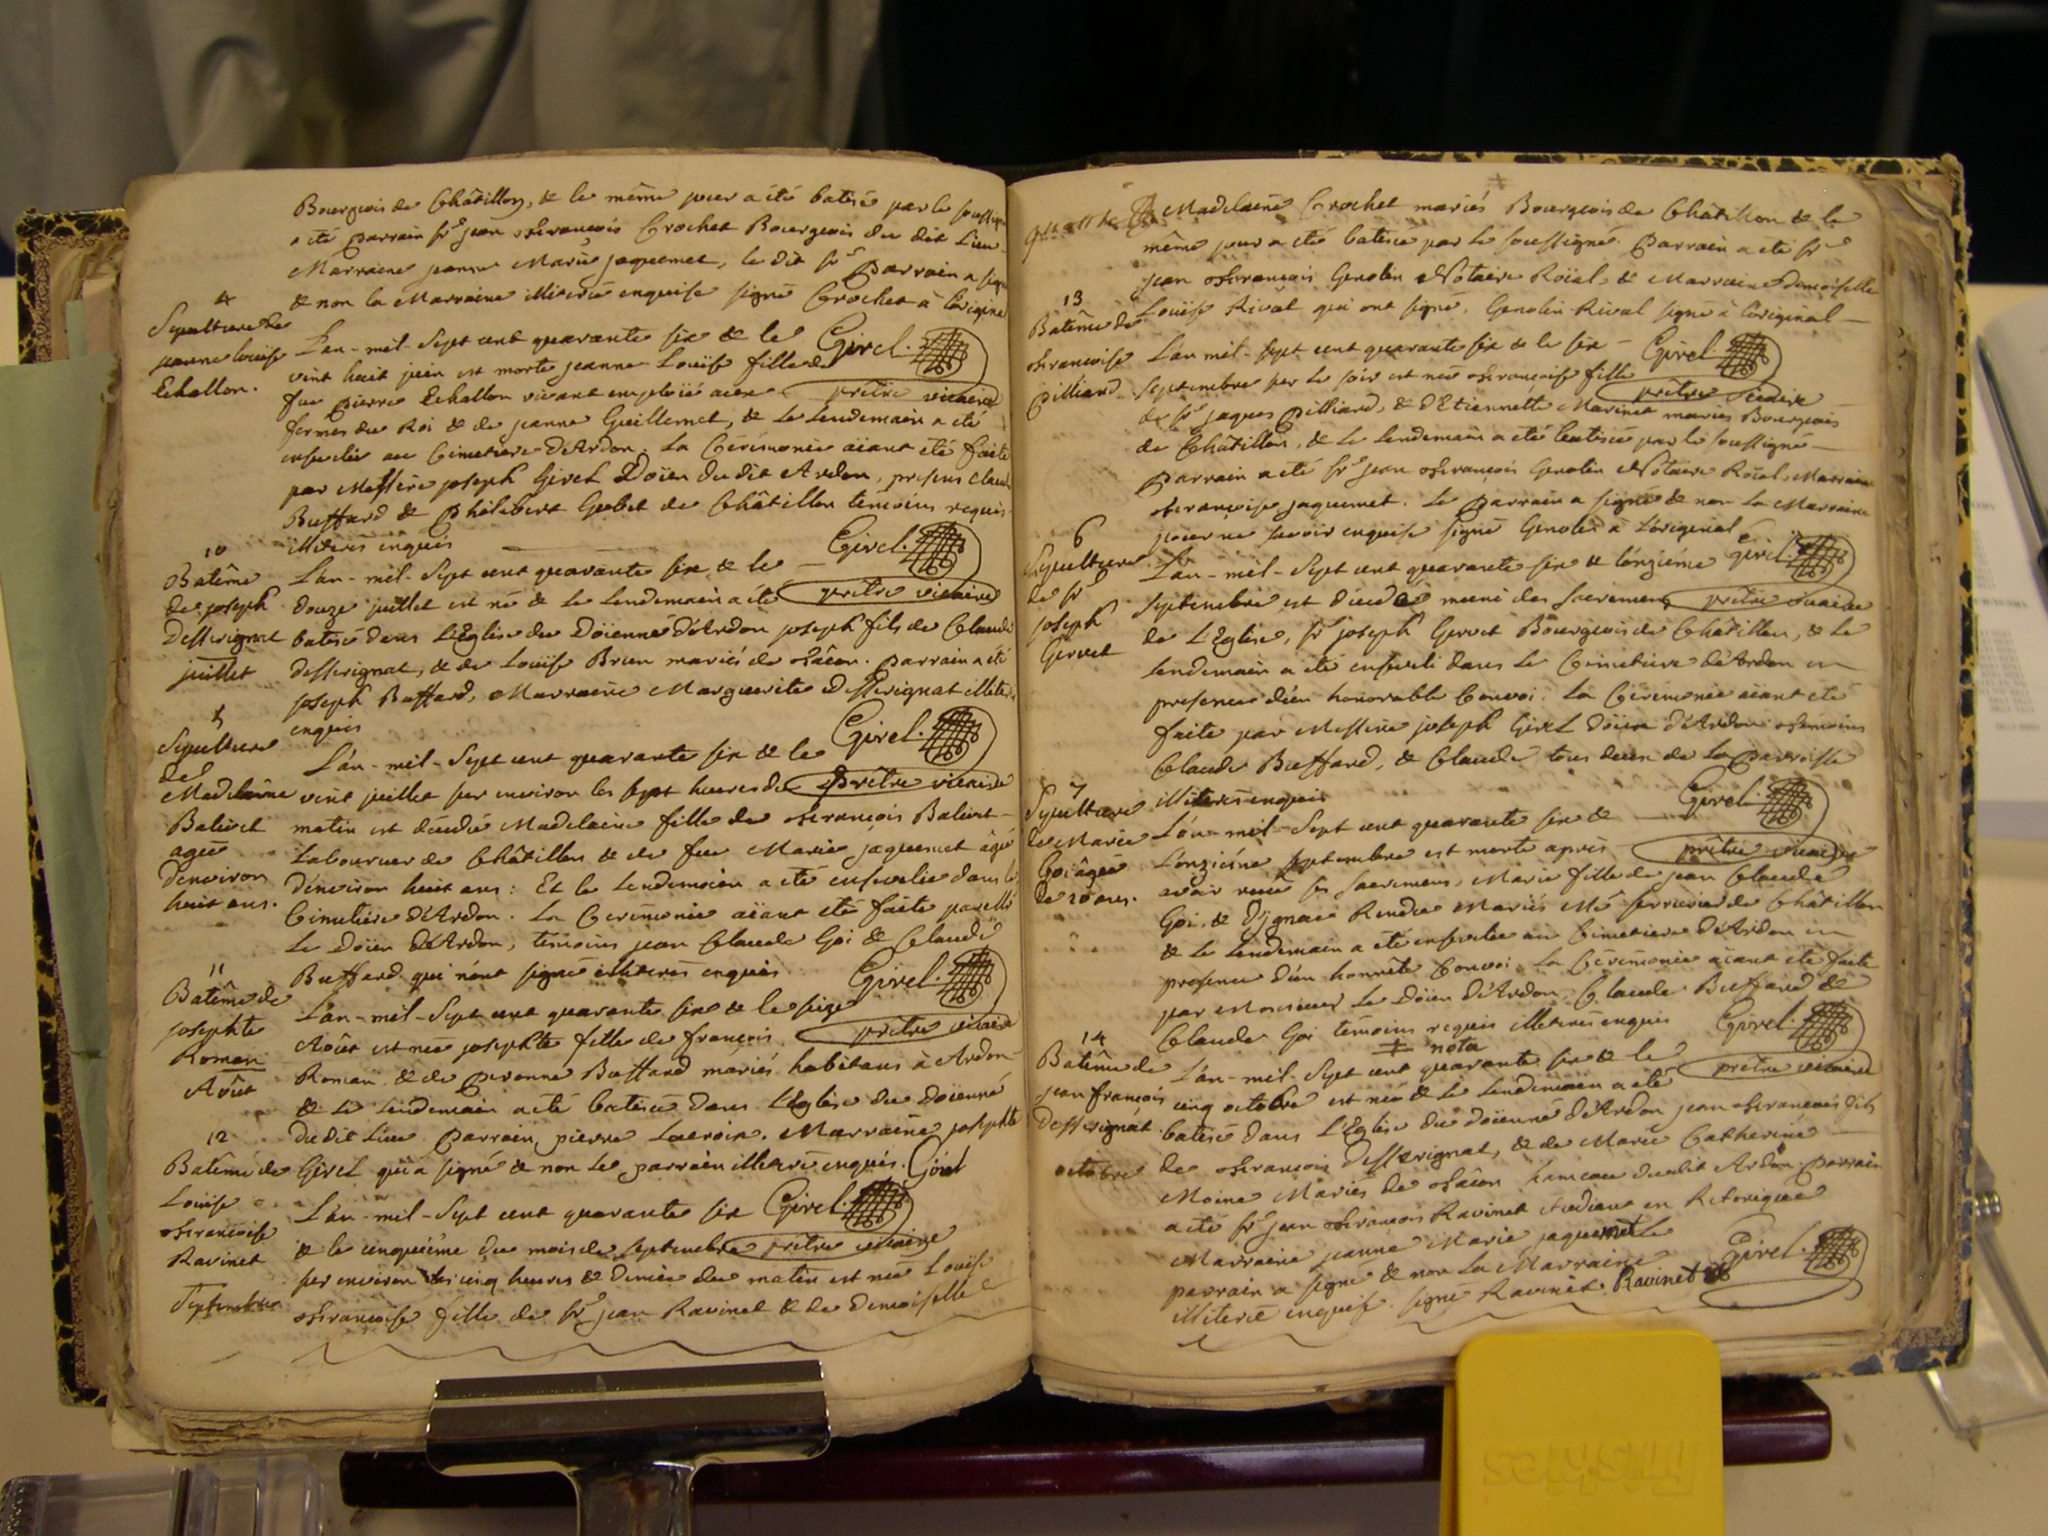 Bourgeois de Châtillon, & le même jour a été batisé par le soussigné
a été parrain sr jean François Crochet Bourgeois du dit Lieu
Marraine jeanne Marie jaquemet, le dit sr Parrain a signé
& non la Marraine illiterée enquise signé Crochet à l'original
4
Sepulture de
jeanne louise
Echallon.
L'an-mil-Sept cent quarante six & le
vint huit juin est morte jeanne Louise fille de
feu pierre Echallon vivant emploïé aux
fermes du Roi & de jeanne Guillemet, & le lendemain a été
enseveli au Cimetiere d'Ardon. La Cérémonie aïant été faite
par Messire joseph Girel Doïen du dit Ardon, presens Claude
Buffard & Philibert Gobet de Châtillon temoins requis
illiterés enquis
Girel.
prêtre vicaire
10
Batême
de joseph
Desserignat
juillet
L'an-mil-Sept cent quarante six & le
douze juillet est né & le lendemain a été
batisé dans L'Eglise du Doïenné d'Ardon joseph fils de Claude
Desserignat, & de Louïse Brun mariés de Tâcon. parrain a été
joseph Buffard, Marraine Marguerite Desserignat illiterés
enquis
Girel.
prêtre vicaire
5
Sepulture
de
Madelaine
Balivet
agée
d'environ
huit ans.
L'an-mil-Sept cent quarante six & le
vint juillet sur environ les sept heures du
matin est décedée Madelaine fille de François Balivet
Laboureur de Châtillon & de feue Marie jaquemet agée
d'environ huit ans: Et le lendemain a été ensevelie dans le
Cimetiere d'Ardon. La Ceremonie aïant été faite par
Le Doïen d'Ardon, témoins jean Claude Goi & Claude
Buffard qui n'ont signé illiterés enquis
Girel.
prêtre vicaire
11
Batême de
josephte
Roman
Août
L'an-mil-Sept cent quarante six & le seize
Août est née josephte fille de françois
Roman & de Peronne Buffard mariés habitans à Ardon
& le lendemain a été batisée dans L'Eglise du Doïenné
du dit Lieu. Parrain, pierre Lacroix. Marraine josephte
Girel qui a signé & non le parrain illiteré enquis. Girel
Girel.
prêtre vicaire
12
Batême de
Louise
Françoise
Ravinet
Septembre
L'an-mil-Sept cent quarante six
& le cinquiéme du mois de Septembre
sur environ les cinq heures & demie du matin est née Louïse
Françoise fille de sr jean Ravinet & de Demoiselle
Madelaine Crochet mariés Bourgeois de Châtillon & le
même jour a été batisée par le soussigné. Parrain a été sr
jean François Genolin Notaire Roïal, & Marraine Demoiselle
Louïse Rival qui ont signé. Genolin Rival signé à l'original
Girel
prêtre vicaire
13
Batême de
Françoise
Pilliard
L'an mil-Sept cent quarante six & le six
Septembre sur le soir est née Françoise fille
de sr jaques Pilliard, & d'Etiennette Marinet mariés Bourgeois
de Châtillon, & le lendemain a été batisée par le soussigné
Parrain a été sr jean François Genolin Notaire Roïal, Marraine
Françoise jaquemet. Le Parrain a signé & non la Marraine
pour ne savoir enquise signé Genolin à l'original
Girel
prêtre vicaire
6
Sepulture
de sr
joseph
Gervet
L'an-mil-Sept cent quarante six & l'onziéme
Septembre est décedé muni des Sacremens
de L'Eglise, sr joseph Gervet Bourgeois de Châtillon, & le
lendemain a été enseveli dans le Cimetiere d'Ardon en
presence d'un honorable Convoi. La Ceremonie aïant été
faite par Messire joseph Girel Doïen d'Ardon temoins
Claude Buffard, & Claude tous deux de la Parroisse
illiterés enquis
Girel.
prêtre vicaire
7
Sepulture
de Marie
Goi âgée
de 20 ans.
L'an-mil-Sept cent quarante six &
l'onziéme Septembre est morte après
avoir reçu ses Sacremens, Marie fille de jean Claude
Goi, & d'jgnace Rendu Mariés Me serrurier de Châtillon
& le lendemain a été ensevelie au Cimetiere d'Ardon en
presence d'un honnête Convoi. La Ceremonie aïant été faite
par Monsieur Le Doïen d'Ardon. Claude Buffard &
Claude Goi temoins requis illiterés enquis
nota
Girel.
prêtre vicaire
14
Batême de
jean françois
Desserignat
octobre
L'an-mil-Sept cent quarante six & le
cinq octobre est né & le lendemain a été
batisé dans L'Eglise du doïenné d'Ardon jean François fils
de François Desserignat, & de Marie Catherine
Moine Mariés de Tâcon hameau dudit Ardon parrain
a été sr jean François Ravinet étudiant en Retorique
Marraine jeanne Marie jaquemet Le
parrain a signé & non la Marraine
illiterée enquise. signé Ravinet. Ravinet
Girel.